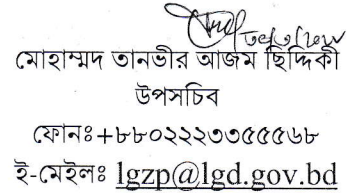 মোহাম্মদ তানভীর আজম ছিদ্দিকী
উপসচিব
ফোনঃ+৮৮০২২২৩৩৫৫৫৬৮
ই-মেইলঃ lgzp@lgd.gov.bd